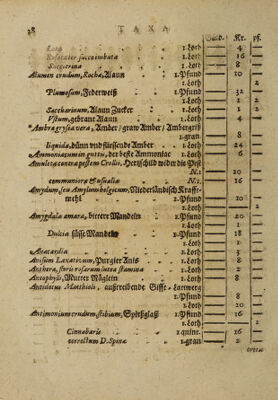 38 TAXA
Guld. Kr. pf.
Rosatae succoimbuta 1.Loth — 16 —
Succarina 1.Loth — 8 —
Alumen crudum, Rocha, Alaun 1.Pfund — 10 —
1.Loth — — 2
Plumosum, Federweiß 1.Pfund — 32 —
1.Loth — 1 —
Saccharinum, Alaun Zucker 1.Loth — 1 —
Vstum, gebrant Alaun 1.Loth — 4 —
*Ambra grysea vera, Amber / graw Amber / Ambergriß
1.gran — 8 —
Liquida, dünn und fliessende Amber 1.Loth — 24 —
Ammoniacum in guttis, der beste Ammoniac 1.Loth — 6 —
Amuleta contra pestem Crollii, Petschild wider die Pest
N.1 — 20 —
communiora & usualia N.1 — 16 —
Amydum, seu Amylum belgicum, Niederländisch Krafft-
mehl 1.Pfund — 10 —
1.Loth — — 2
Amygdala amara, bittere Mandeln 1.Pfund — 20 —
1.Loth — 1 —
Dulcia süsse Mandeln 1.Pfund — 18 —
1.Loth — 1 —
Anacardia 1.Loth — 5 —
Anisum Laxativum, Purgier Anis 1.Loth — 8 —
Anthera, floris rosarum interna stamina 1.Loth — 4 —
Antophyli, Mutter Näglein 1.Loth — 8 —
Antidotus Matthioli, außtreibende Gifft-Latwerg
1.Pfund — 10 —
1.Loth — 8 —
Antimonium crudum, stibium, Spießglaß 1.Pfund — 16 —
1.Loth
Cinnabaris 1.quint. — 16 —
correctum D. Spinæ 1.gran — 2 —